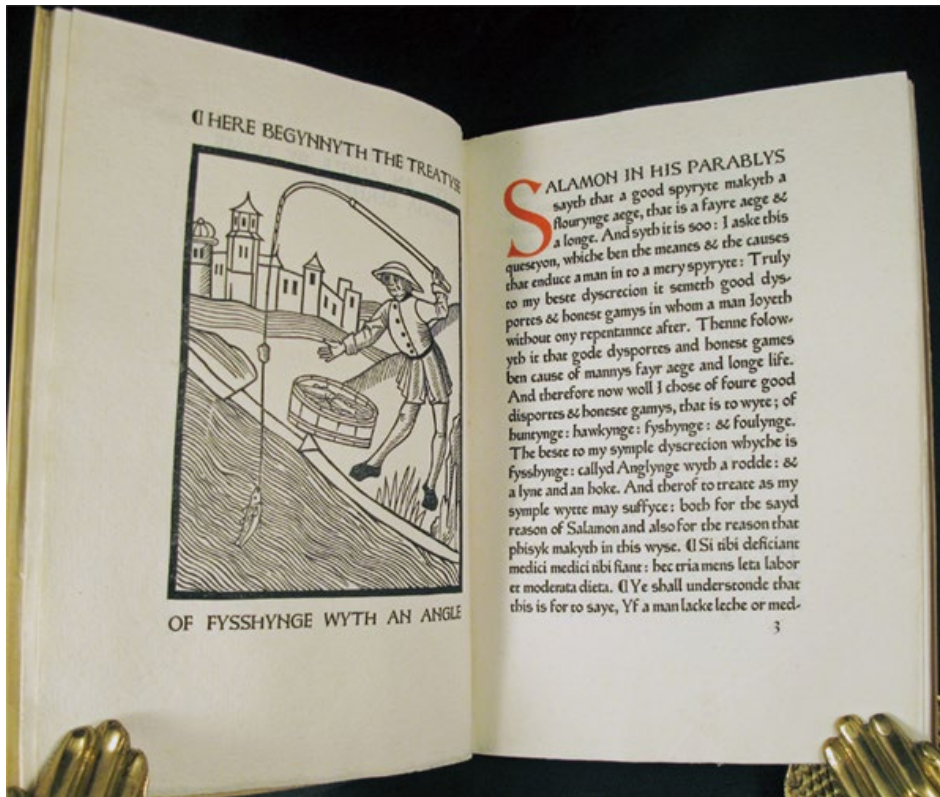 ⁋ HERE BEGYNNYTH THE TREATYSE
OF FYSSHYNGE WYTH AN ANGLE
SALAMON IN HIS PARABLYS
sayth that a good spyryte makyth a
flourynge aege, that is a fayre aege &
a longe. And syth it is soo: I aske this
questyon, whiche ben the meanes & the causes
that enduce a man in to a mery spyryte: Truly
to my beste dyscrecion it semeth good dys-
portes & honest gamys in whom a man Joyeth
without ony repentannce after. Thenne folow-
yth it that gode dysportes and honest games
ben cause of mannys fayr aege and longe life.
And therefore now woll I chose of foure good
disportes & honeste gamys, that is to wyte; of
huntynge: hawkynge: fyshynge: & foulynge.
The beste to my symple dyscrecion whyche is
fysshynge: callyd Anglynge wyth a rodde: &
a lyne and an hoke. And therof to treate as my
symple wytte may suffyce: both for the sayd
reason of Salamon and also for the reason that
phisyk makyth in this wyse. ⁋ Si tibi deficiant
medici medici tibi fiant: hec tria mens leta labor
et moderata dieta. ⁋ Ye shall understonde that
this is for to saye, Yf a man lacke leche or med-
3